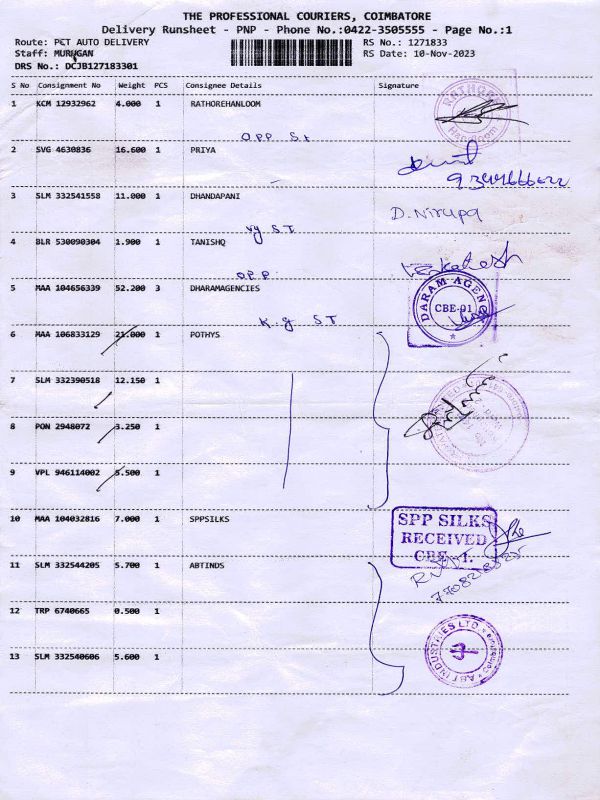 THE PROFESSIONAL COURIERS, COIMBATORE
Delivery Runsheet - PNP - Phone No.:0422-3505555 - Page No.:1
Route: PCT AUTO DELIVERY RS No.: 1271833
Staff: MURUGAN RS Date: 10-Nov-2023
DRS No.: DCJB127183301
S No Consignment No Weight PCS Consignee Details Signature
1 KCM 12932962 4.000 1 RATHOREHANLOOM
RATHORE
Handloom
OPP St
2 SVG 4630836 16.600 1 PRIYA
3 SLM 332541558 11.000 1 DHANDAPANI
D. Nirupa
Vy S.T
4 BLR 530090304 1.900 1 TANISHQ
Venkatesh
OPP
5 MAA 104656339 52.200 3 DHARAMAGENCIES
DARAM AGENC
CBE-01
K.g S.T
6 MAA 106833129 21.000 1 POTHYS
7 SLM 332390518 12.150 1
8 PON 2948072 3.250 1
9 VPL 946114002 5.500 1
10 MAA 104032816 7.000 1 SPPSILKS
SPP SILKS
RECEIVED
CBE-1.
11 SLM 332544205 5.700 1 ABTINDS
12 TRP 6740665 0.500 1
13 SLM 332540606 5.600 1
ABT INDUSTRIES LTD.